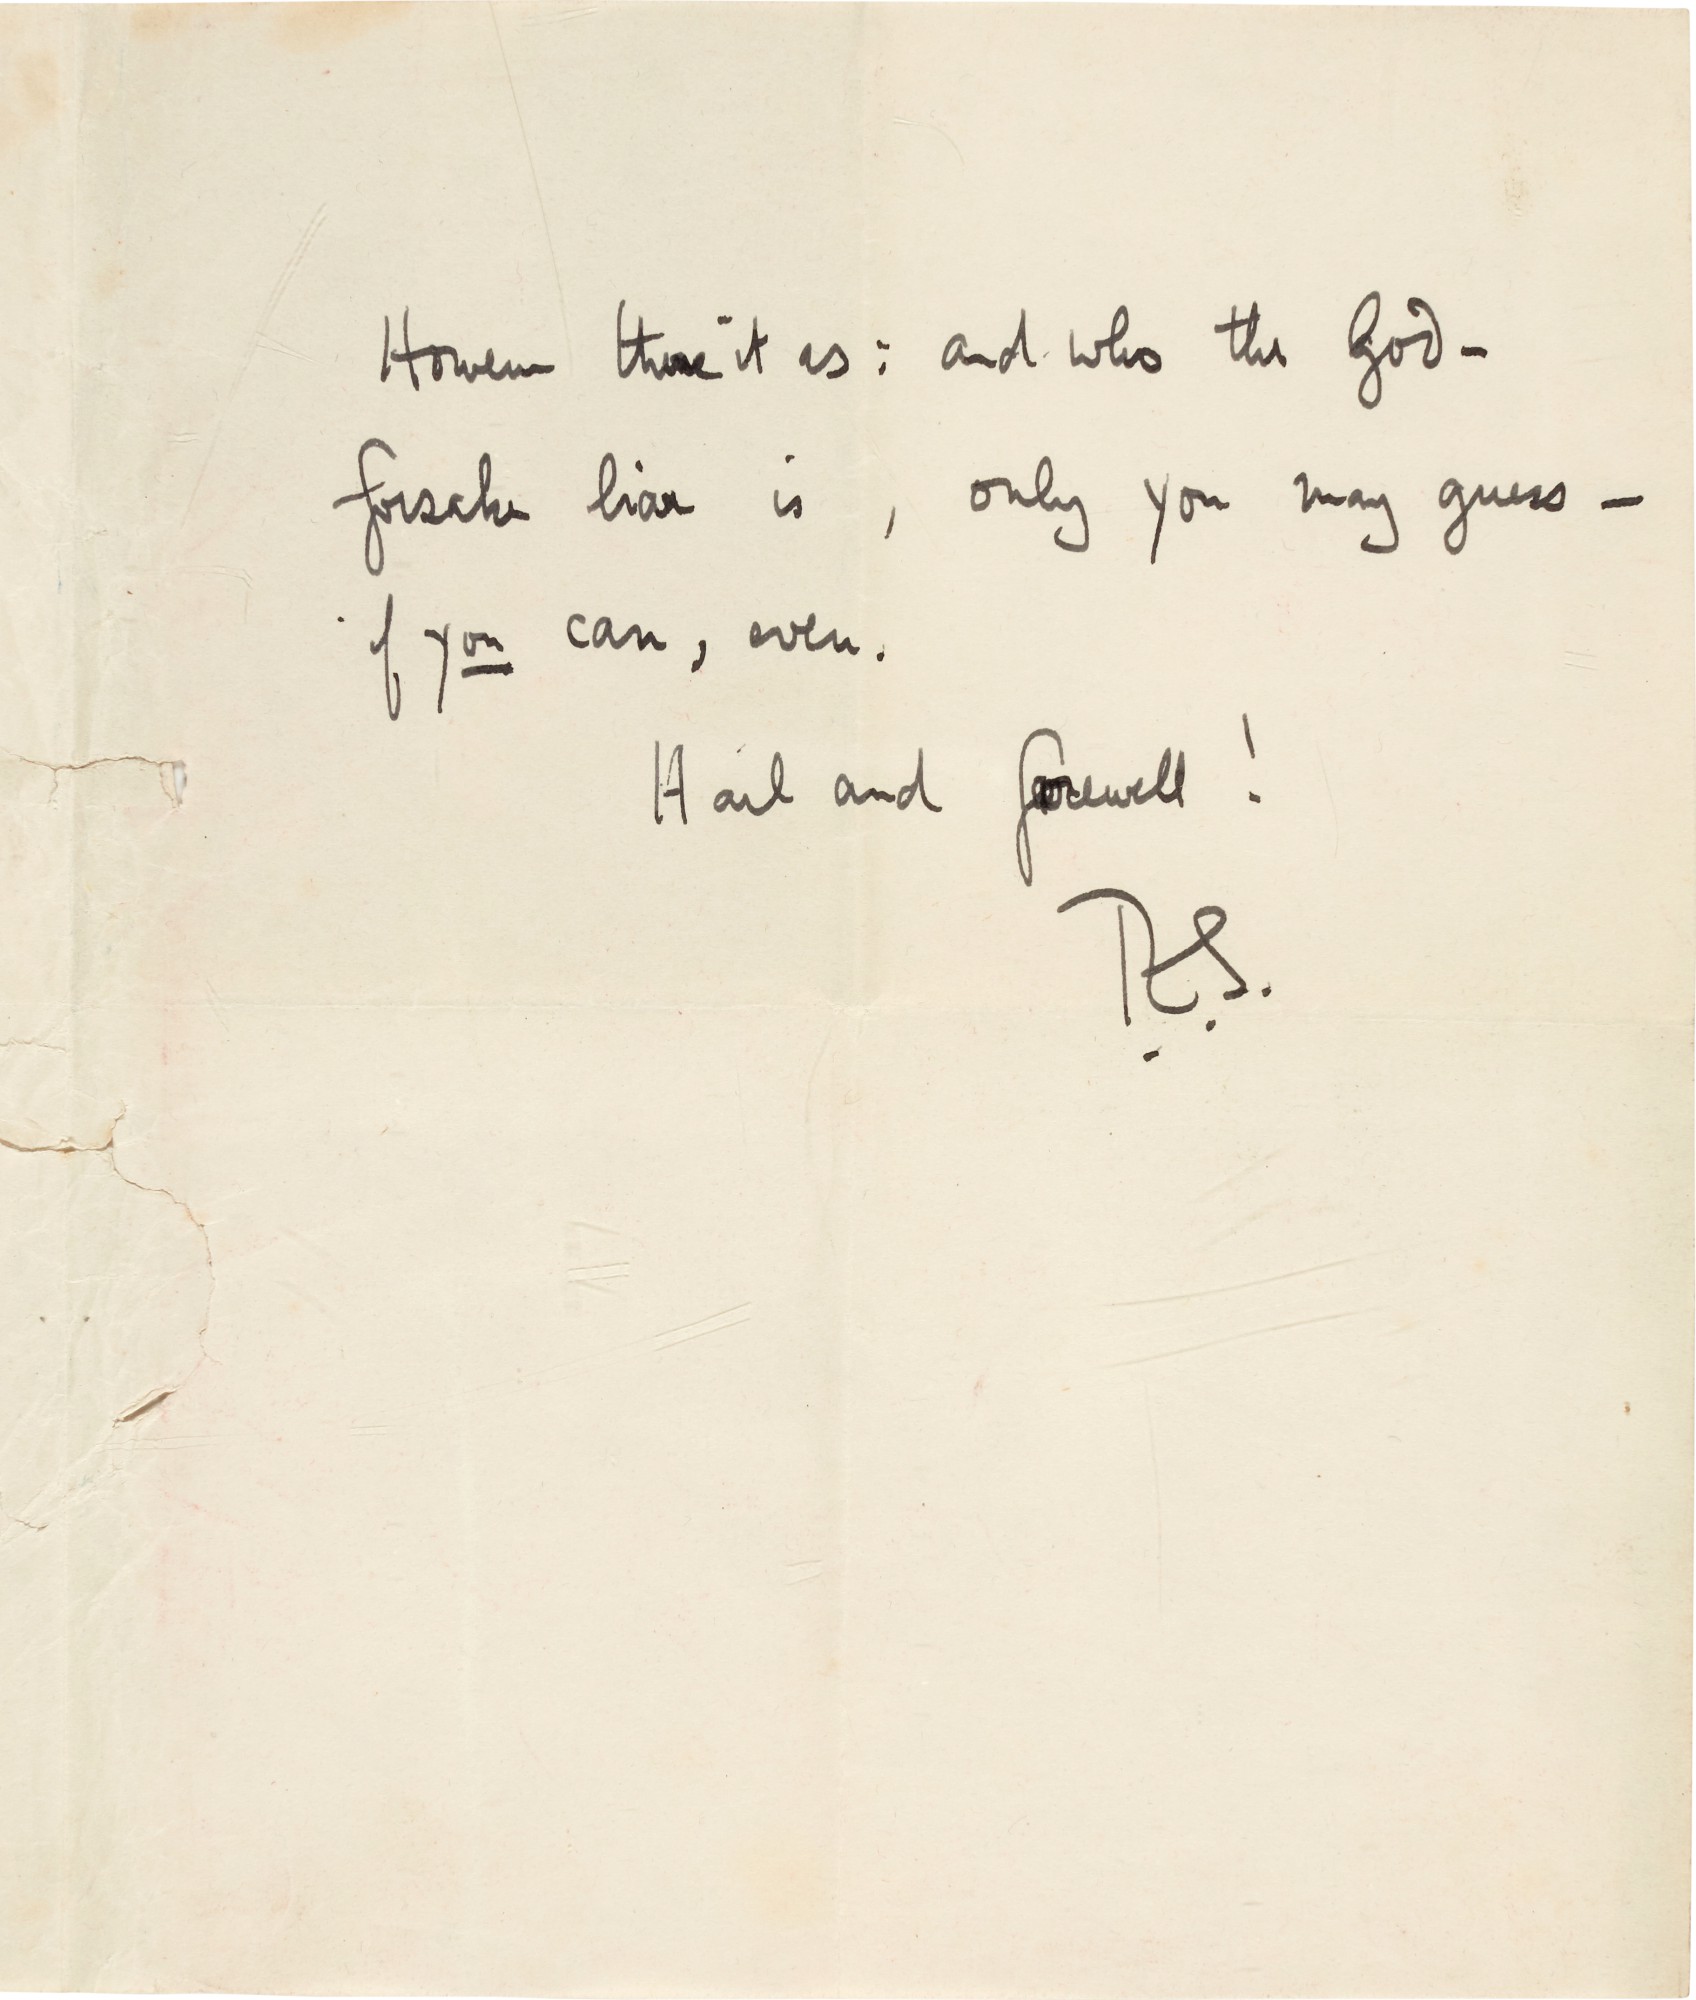 However there it is: and who the God-
forsaken liar is, only you may guess -
if you can, even.
Hail and farewell!
T.E.S.